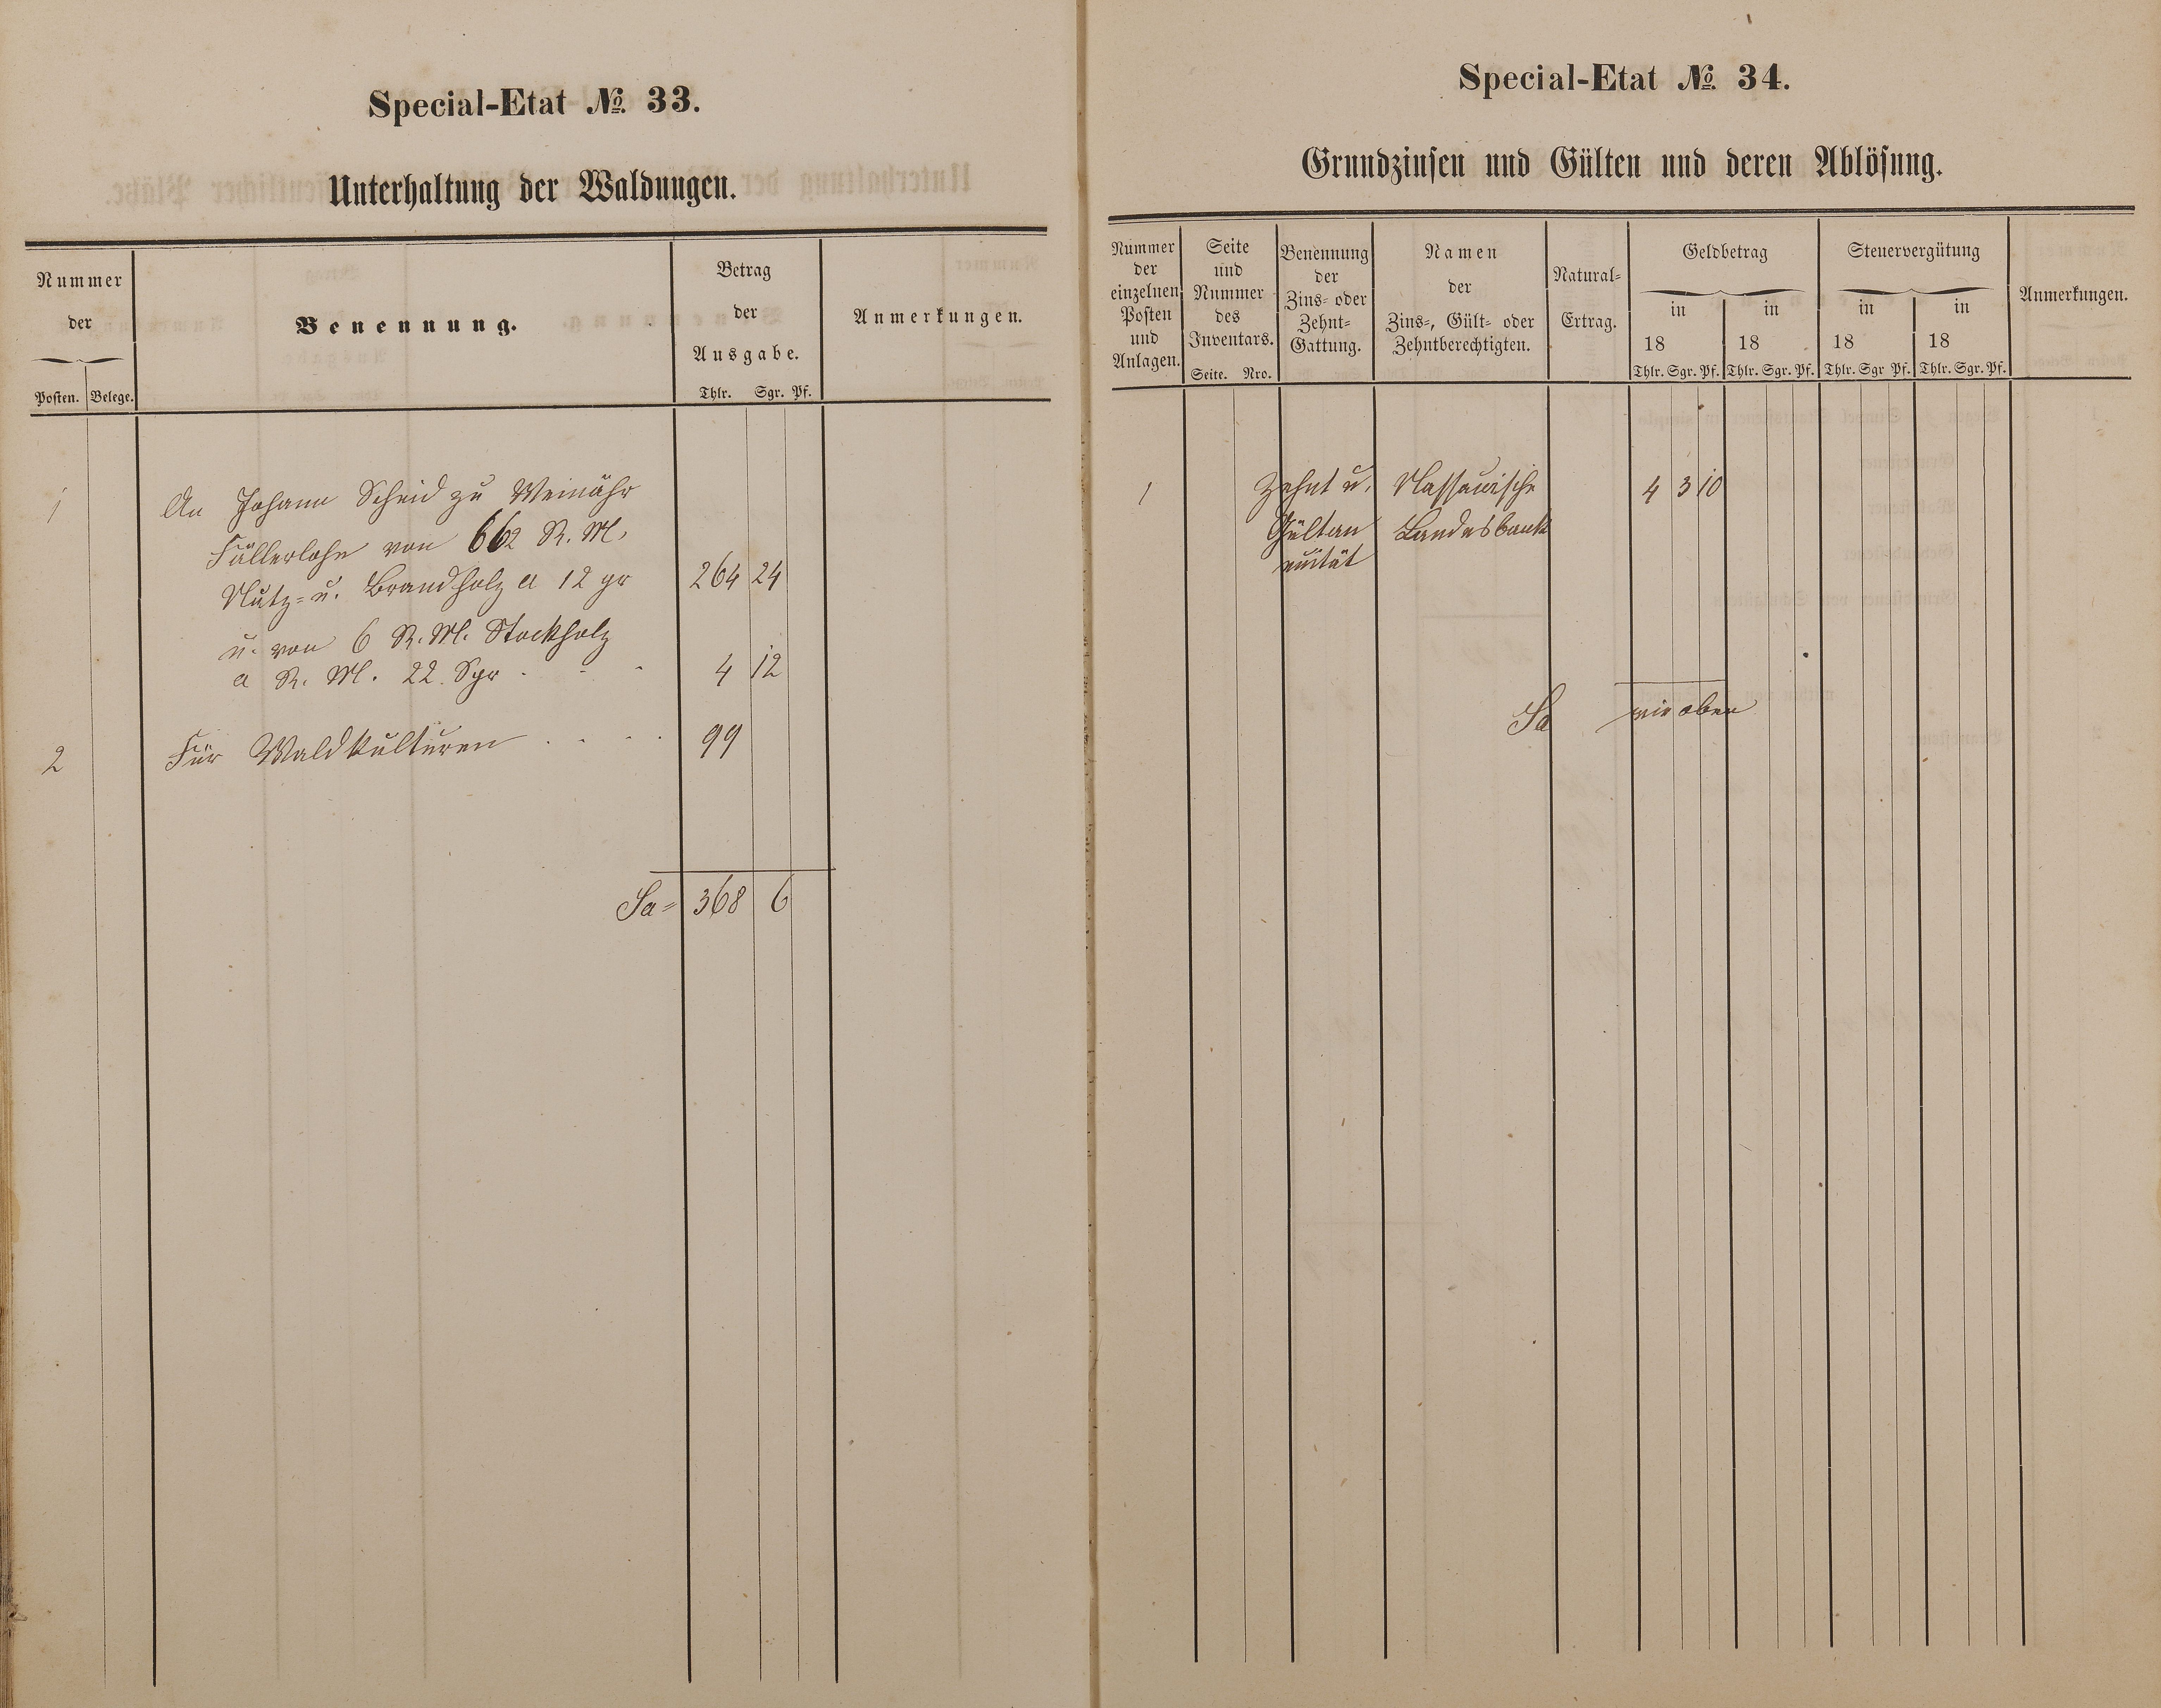 Special-Etat No. 33.
Unterhaltung der Waldungen.
Nummer
der
Posten. Belege.
Benennung.
Betrag
der
Ausgabe.
Thlr. Sgr. Pf.
Anmerkungen.
1 An Johann Scheid zu Weinähr
Fällerlohn von 662 R. M.
Nutz- u. Brandholz a 12 gr 264 24
u. von 6 R. M. Stockholz
a R. M. 22 Sgr . - - 4 12
2 Für Waldkulturen . . . . 99
Sa = 368 6
Special-Etat No. 34.
Grundzinsen und Gülten und deren Ablösung.
Nummer
der
einzelnen
Posten
und
Anlagen.
Seite
und
Nummer
des
Inventars.
Seite. Nro.
Benennung
der
Zins- oder
Zehnt-
Gattung.
Namen
der
Zins-, Gült- oder
Zehntberechtigten.
Natural-
Ertrag.
Geldbetrag
in in
18 18
Thlr. Sgr. Pf. Thlr. Sgr. Pf.
Steuervergütung
in in
18 18
Thlr. Sgr Pf. Thlr. Sgr. Pf.
Anmerkungen.
1 Zehnt u. Nassauische 4 3 10
Gültan Landesbank
nuität
Sa wie oben